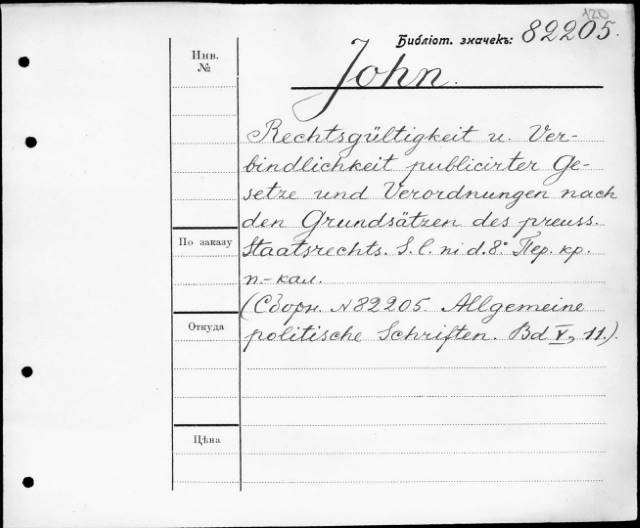 120
Библіот. значекъ: 82205.
Инв.
№
John.
Rechtsgültigkeit u. Ver-
bindlichkeit publicirter Ge-
setze und Verordnungen nach
den Grundsätzen des preuss.
По заказу
Staatsrechts. S. l. ni d. 8° Пер. кр.
п.-кал.
(Сборн. №82205. Allgemeine
Откуда
politische Schriften. Bd V, 11.).
Цѣна